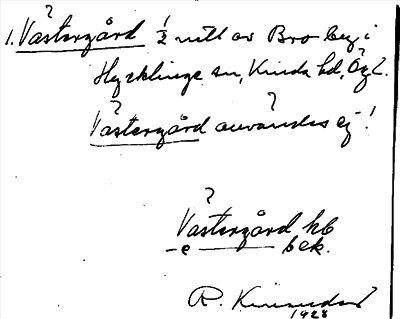 ?
1. Västergård ½ mtl av Bro by i
Hycklinge sn, Kinda hd, Ög l.
? ?
Västergård användes ej!
?
Västergård kb
– e —— bek.
R.
1928